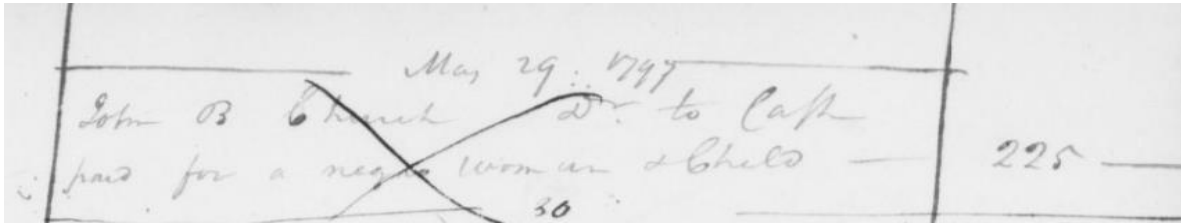 May 29. 1797
John B Church Dr. to Cash
paid for a negro woman & Child — 225 —
30